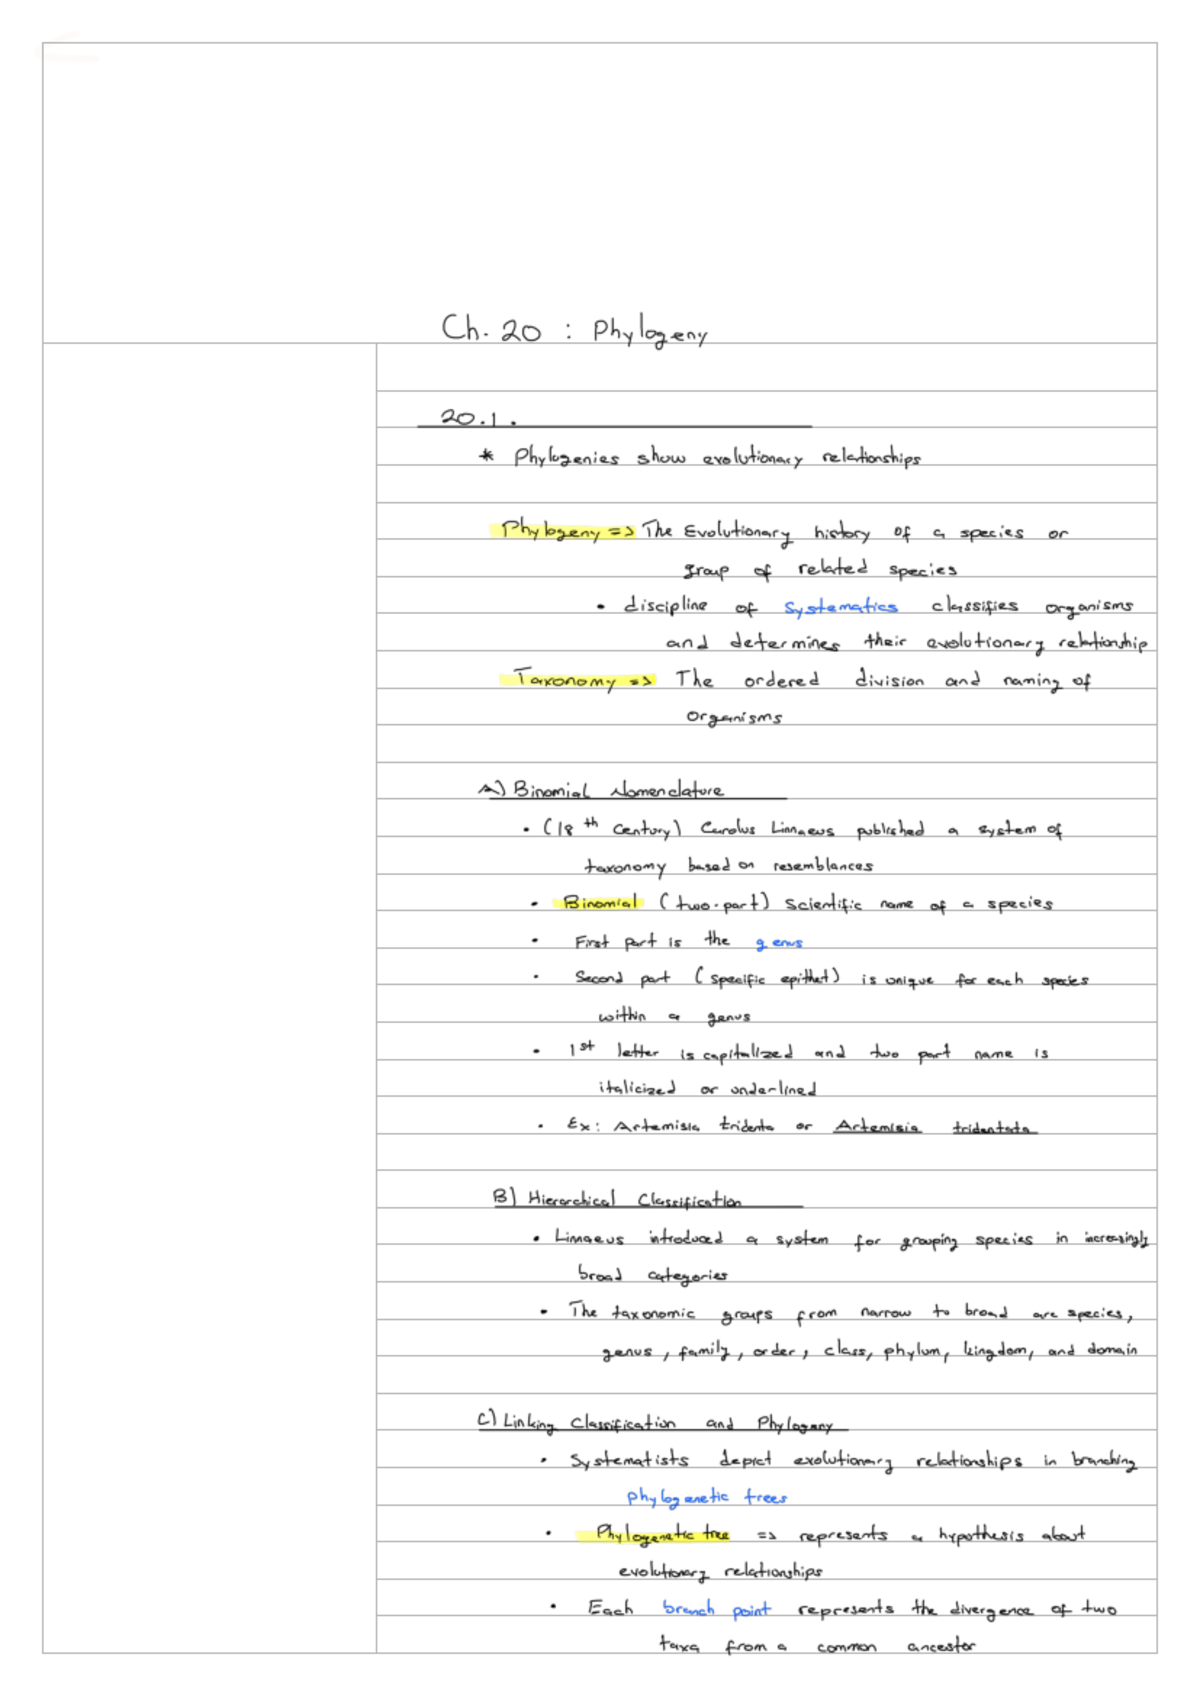 Ch. 20 : Phylogeny
20.1.
* Phylogenies show evolutionary relationships
Phylogeny => The Evolutionary history of a species or
group of related species
• discipline of Systematics classifies organisms
and determines their evolutionary relationship
Taxonomy => The ordered division and naming of
organisms
A) Binomial Nomenclature
• (18th Century) Carolus Linnaeus published a system of
taxonomy based on resemblances
• Binomial (two-part) Scientific name of a species
• First part is the genus
• Second part (specific epithet) is unique for each species
within a genus
• 1st letter is capitalized and two part name is
italicized or underlined
• Ex: Artemisia tridenta or Artemisia tridentata
B) Hierarchical Classification
• Linnaeus introduced a system for grouping species in increasingly
broad categories
• The taxonomic groups from narrow to broad are species,
genus, family, order, class, phylum, kingdom, and domain
C) Linking Classification and Phylogeny
• Systematists depict evolutionary relationships in branching
phylogenetic trees
• Phylogenetic tree => represents a hypothesis about
evolutionary relationships
• Each branch point represents the divergence of two
taxa from a common ancestor